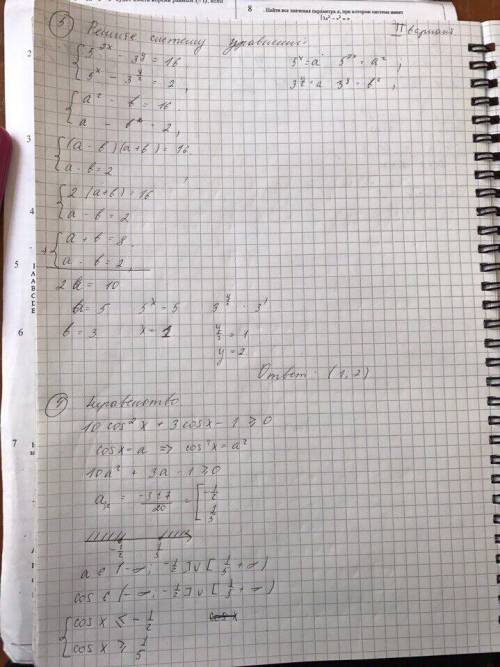 8
Найти все значения параметра a, при котором система имеет
3
Решить систему уравнений:
II вариант
5^{2x} - 3^y = 16
5^x - 3^{y/2} = 2,
5^x = a 5^{2x} = a^2,
3^{y/2} = a 3^y = b^2,
a^2 - b = 16
a - b^2 = 2,
3
(a - b)(a+b) = 16
a - b = 2
,
2 (a+b) = 16
4
a - b = 2
a + b = 8
+
a - b = 2,
5
2a = 10
a = 5 5^x = 5 3^{y/2} = 3^1
6
b = 3 x = 1 y/2 = 1
y = 2
Ответ: (1, 2)
4
Неравенство
10 cos^2 x + 3 cos x - 1 ≥ 0
7
cos x = a => cos^2 x = a^2
10a^2 + 3a - 1 ≥ 0
a_{1,2} = (-3±7)/20 = [ -1/2
1/5
-1/2 1/5
a ∈ (-∞; -1/2] ∪ [1/5; +∞)
cos ∈ (-∞; -1/2] ∪ [1/5; +∞)
cos x ≤ -1/2
cos x ≥ 1/5